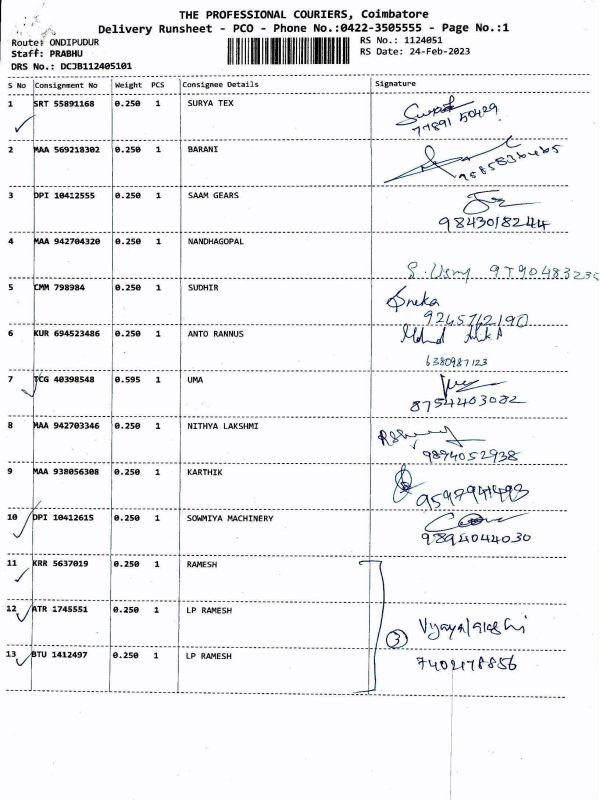 THE PROFESSIONAL COURIERS, Coimbatore
Delivery Runsheet - PCO - Phone No.:0422-3505555 - Page No.:1
Route: ONDIPUDUR RS No.: 1124051
Staff: PRABHU RS Date: 24-Feb-2023
DRS No.: DCJB112405101
S No Consignment No Weight PCS Consignee Details Signature
1 SRT 55891168 0.250 1 SURYA TEX
77891 50429
2 MAA 569218302 0.250 1 BARANI
3 DPI 10412555 0.250 1 SAAM GEARS
9843018244
4 MAA 942704320 0.250 1 NANDHAGOPAL
5 CMM 798984 0.250 1 SUDHIR Sneka
9245762190
6 KUR 694523486 0.250 1 ANTO RANNUS Mohd
6380987123
7 TCG 40398548 0.595 1 UMA
8754403082
8 MAA 942703346 0.250 1 NITHYA LAKSHMI
9894052938
9 MAA 938056308 0.250 1 KARTHIK
9597941493
10 DPI 10412615 0.250 1 SOWMIYA MACHINERY
9894044030
11 KRR 5637019 0.250 1 RAMESH
12 ATR 1745551 0.250 1 LP RAMESH
3 Vijayalakshi
13 BTU 1412497 0.250 1 LP RAMESH 7402178856